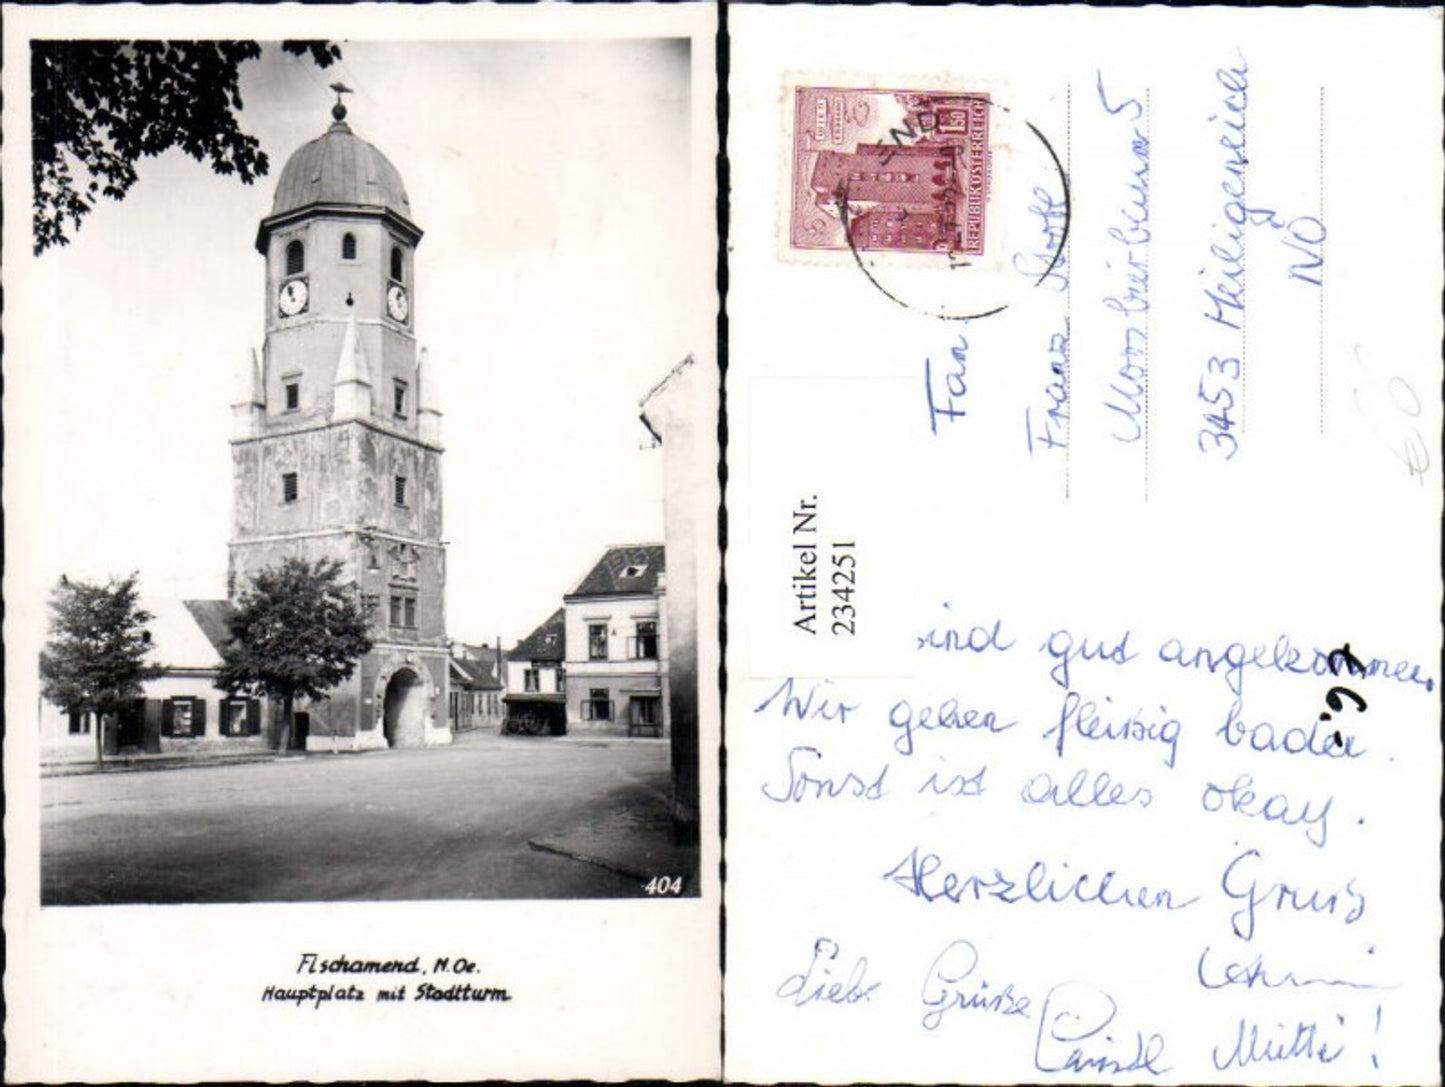 404
Fischamend, N.Oe.
Hauptplatz mit Stadtturm
1.50
REPUBLIK ÖSTERREICH
END
Fam.
Franz
Moosbierbaum 5
3453 Heiligeneich
NÖ
Artikel Nr.
234251
ind gut angekommen.
Wir gehen fleißig baden.
Sonst ist alles okay.
Herzlichen Gruß
Liebe Grüße
Mutti!